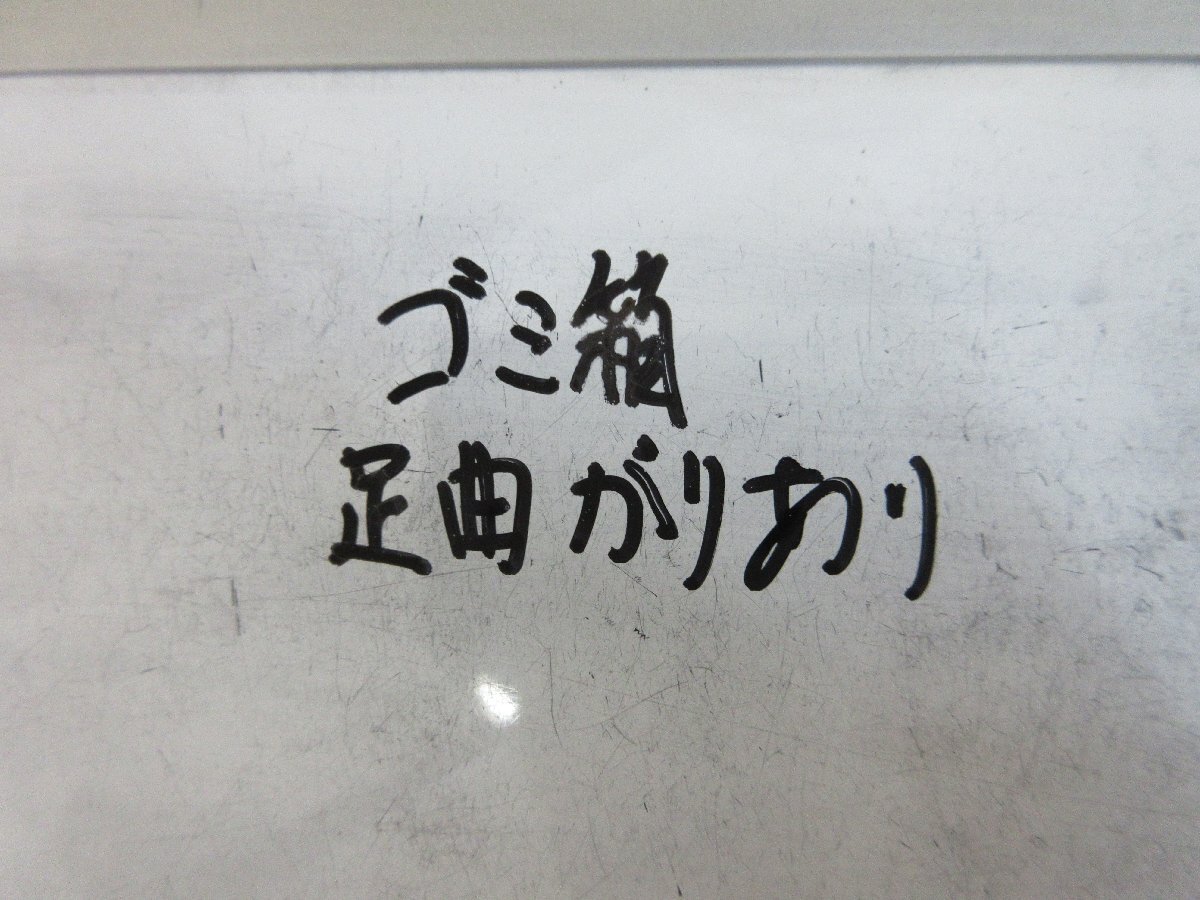 ゴミ箱
足曲がりあり